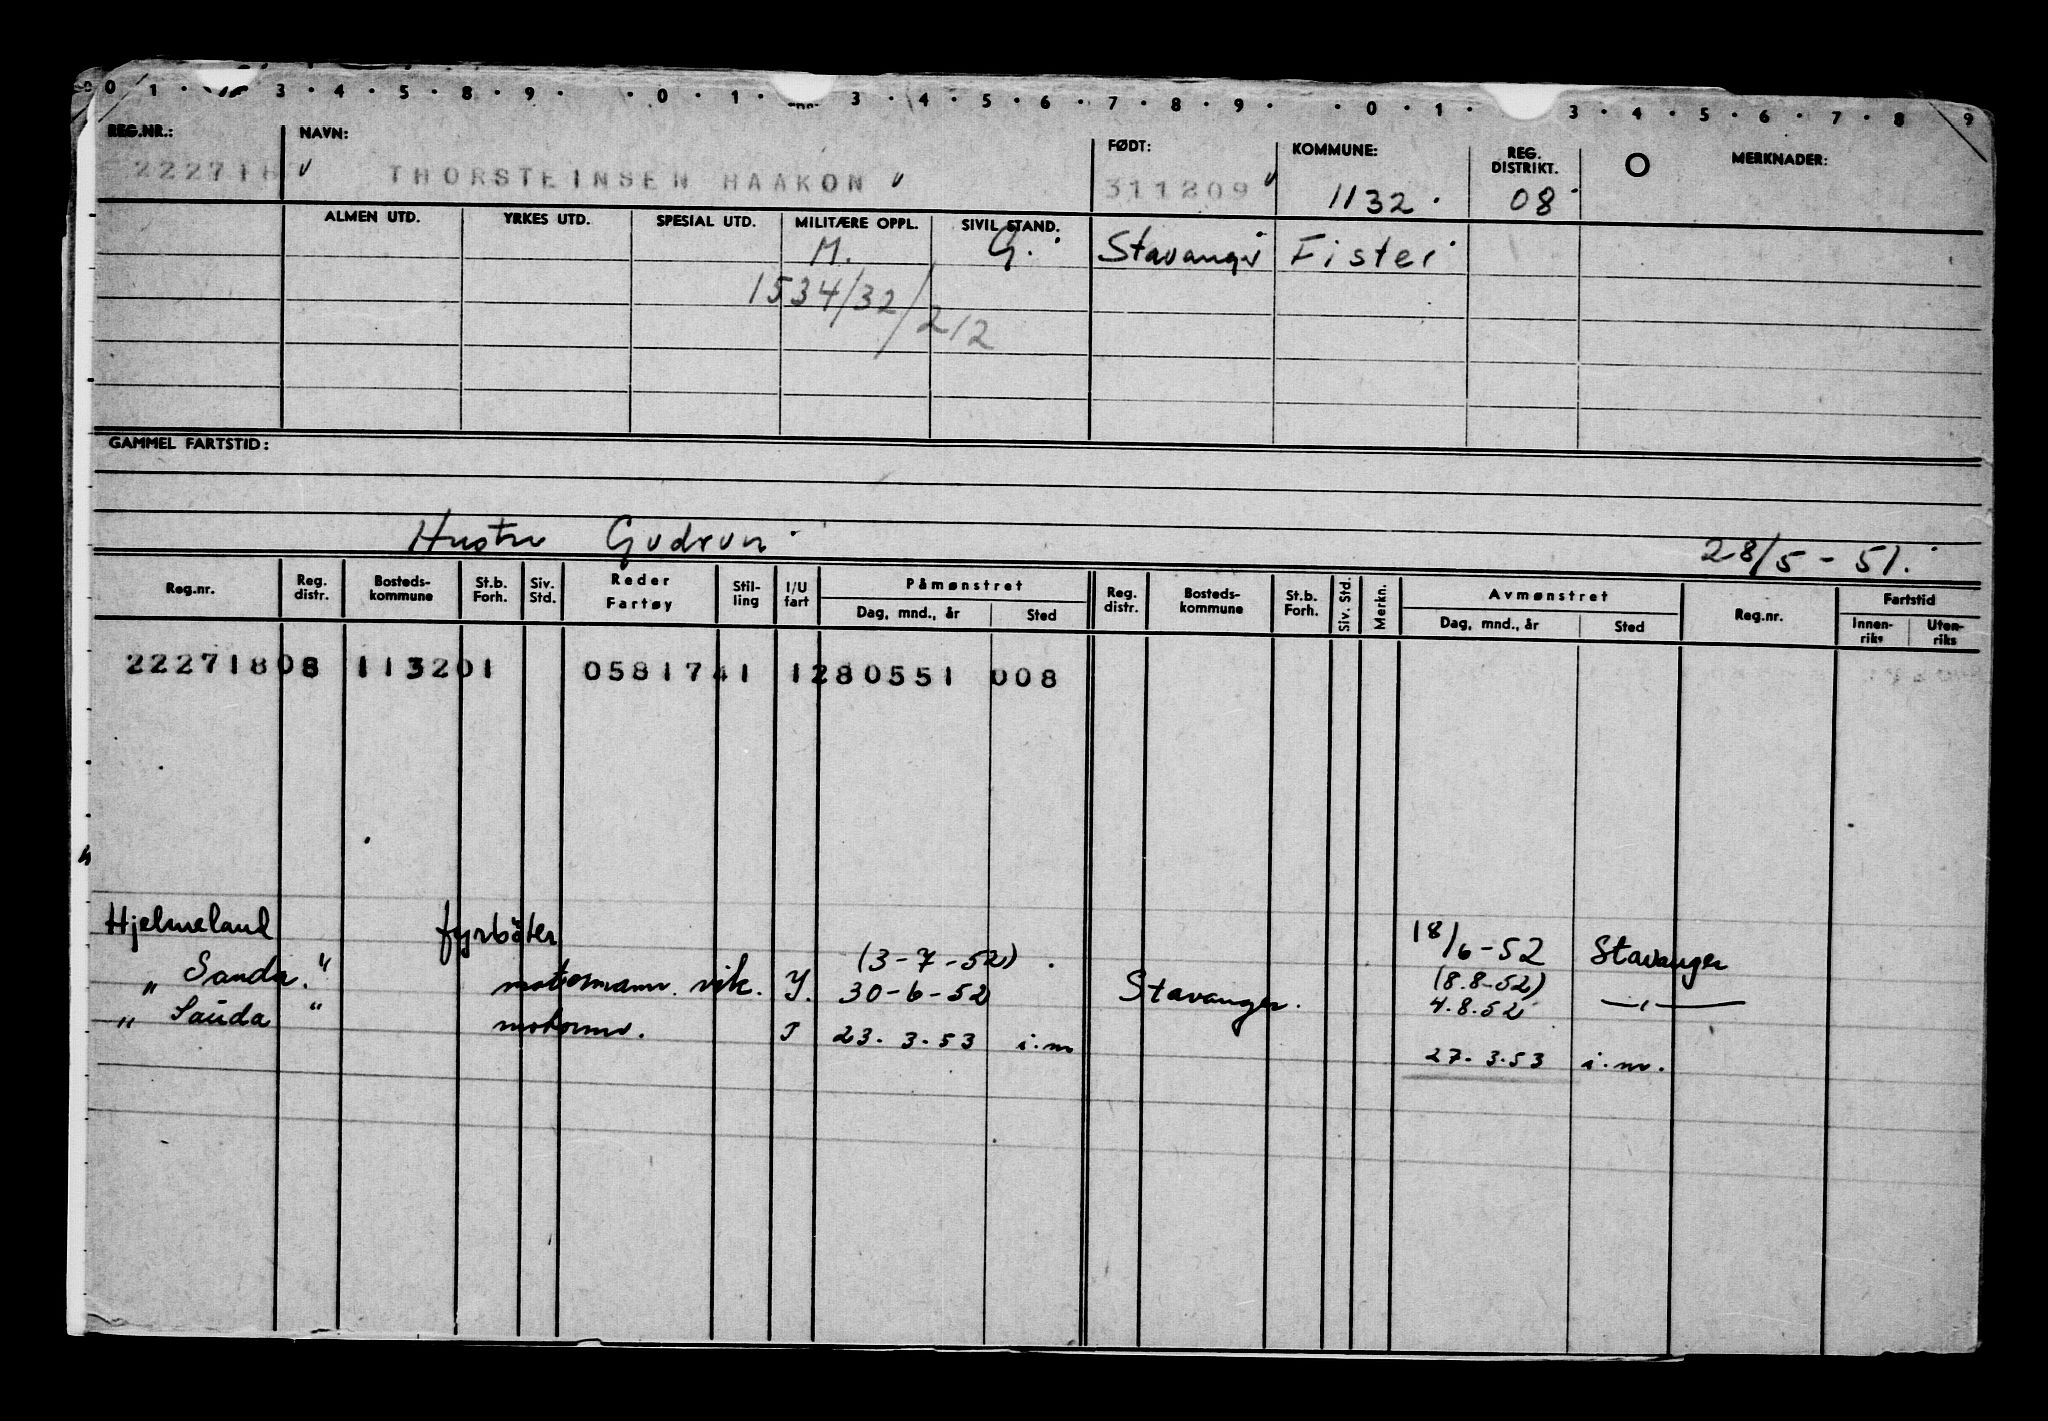 0 1 · 3 · 4 · 5 · 8 · 9 · · 0 · 1 · 3 · 4 · 5 · 6 · 7 · 8 · 9 · · 0 · 1 · 3 · 4 · 5 · 6 · 7 · 8 9
REG.NR.: NAVN: FØDT: KOMMUNE: REG. DISTRIKT. O MERKNADER:
222718 THORSTEINSEN HAAKON 311209 1132. 08
ALMEN UTD. YRKES UTD. SPESIAL UTD. MILITÆRE OPPL. SIVIL STAND.
M. G. Stavanger Fister
1534/32/212
GAMMEL FARTSTID:
Hustru Gudrun 28/5 - 51.
Reg.nr. Reg. distr. Bosteds-kommune St.b. Forh. Siv. Std. Reder Fartøy Stil-ling I/U fart Påmønstret Dag, mnd., år Sted Reg. distr. Bosteds-kommune St.b. Forh. Siv. Std. Merkn. Avmønstret Dag, mnd., år Sted Reg.nr. Fartstid Innen-riks Uten-riks
22271808 113201 0581741 1280551 008
Hjelmeland fyrbøter 18/6-52 Stavanger
(3-7-52) . (8.8-52)
" Sauda. " motormann. vik. I. 30-6-52 Stavanger. 4.8.52 — " —
" Sauda " motorm. I 23. 3. 53 i.m 27. 3.53 i.m.